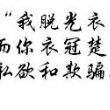 “我脱光衣
而你衣冠楚
私欲和欺骗